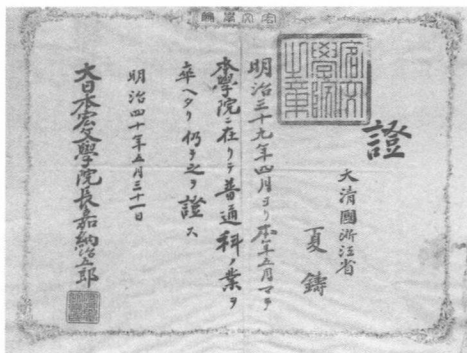 證
大清國浙江省
夏鑄
宏文
學院
之章
明治三十九年四月ヨリ本年五月マテ
本學院ニ在リテ普通科ノ業ヲ
卒ヘタリ仍テ之ヲ證ス
明治四十年五月三十一日
大日本宏文學院長嘉納治五郎